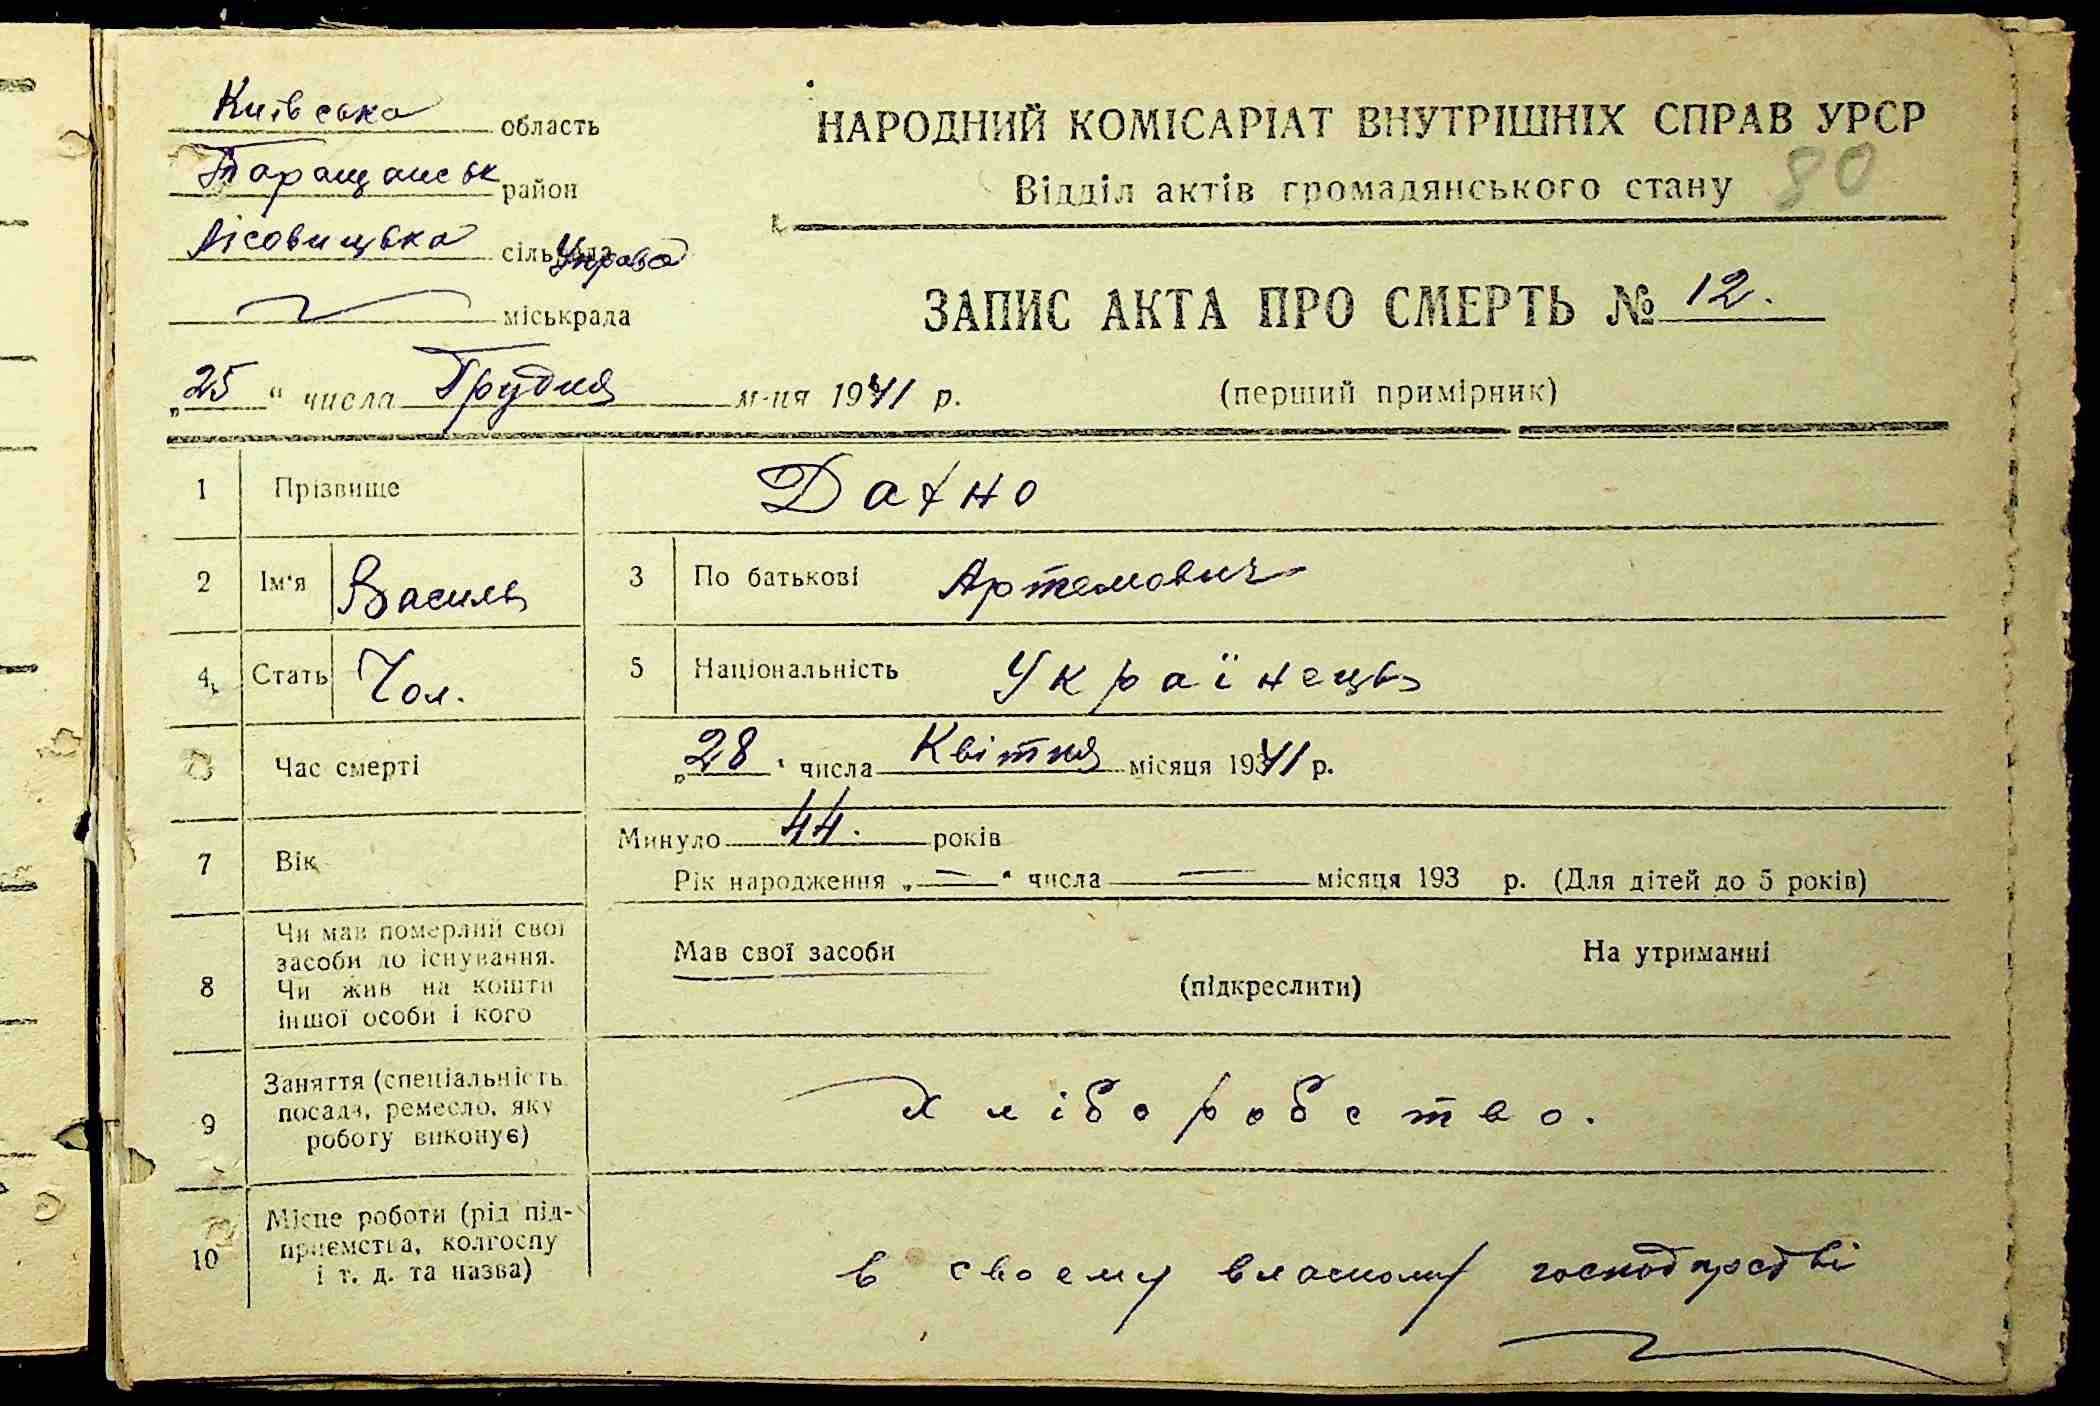 Київська область
Таращанськ район
Лісовицька сільрада Управа
міськрада
НАРОДНИЙ КОМІСАРІАТ ВНУТРІШНІХ СПРАВ УРСР
Відділ актів громадянського стану 80
ЗАПИС АКТА ПРО СМЕРТЬ № 12.
„25“ числа Грудня м-ця 1941 р.
(перший примірник)
1 Прізвище Дахно
2 Ім'я Василь 3 По батькові Артемович
4 Стать Чол. 5 Національність Українець
Час смерті „28“ числа Квітня місяця 1941 р.
7 Вік Минуло 44. років
Рік народження „—“ числа — місяця 193 р. (Для дітей до 5 років)
8 Чи мав померлий свої
засоби до існування.
Чи жив на кошти
іншої особи і кого
Мав свої засоби На утриманні
(підкреслити)
9 Заняття (спеціальність,
посада, ремесло, яку
роботу виконує)
Хліборобство.
10 Місце роботи (рід під-
приємства, колгоспу
і т. д. та назва)
в своему власному господарстві